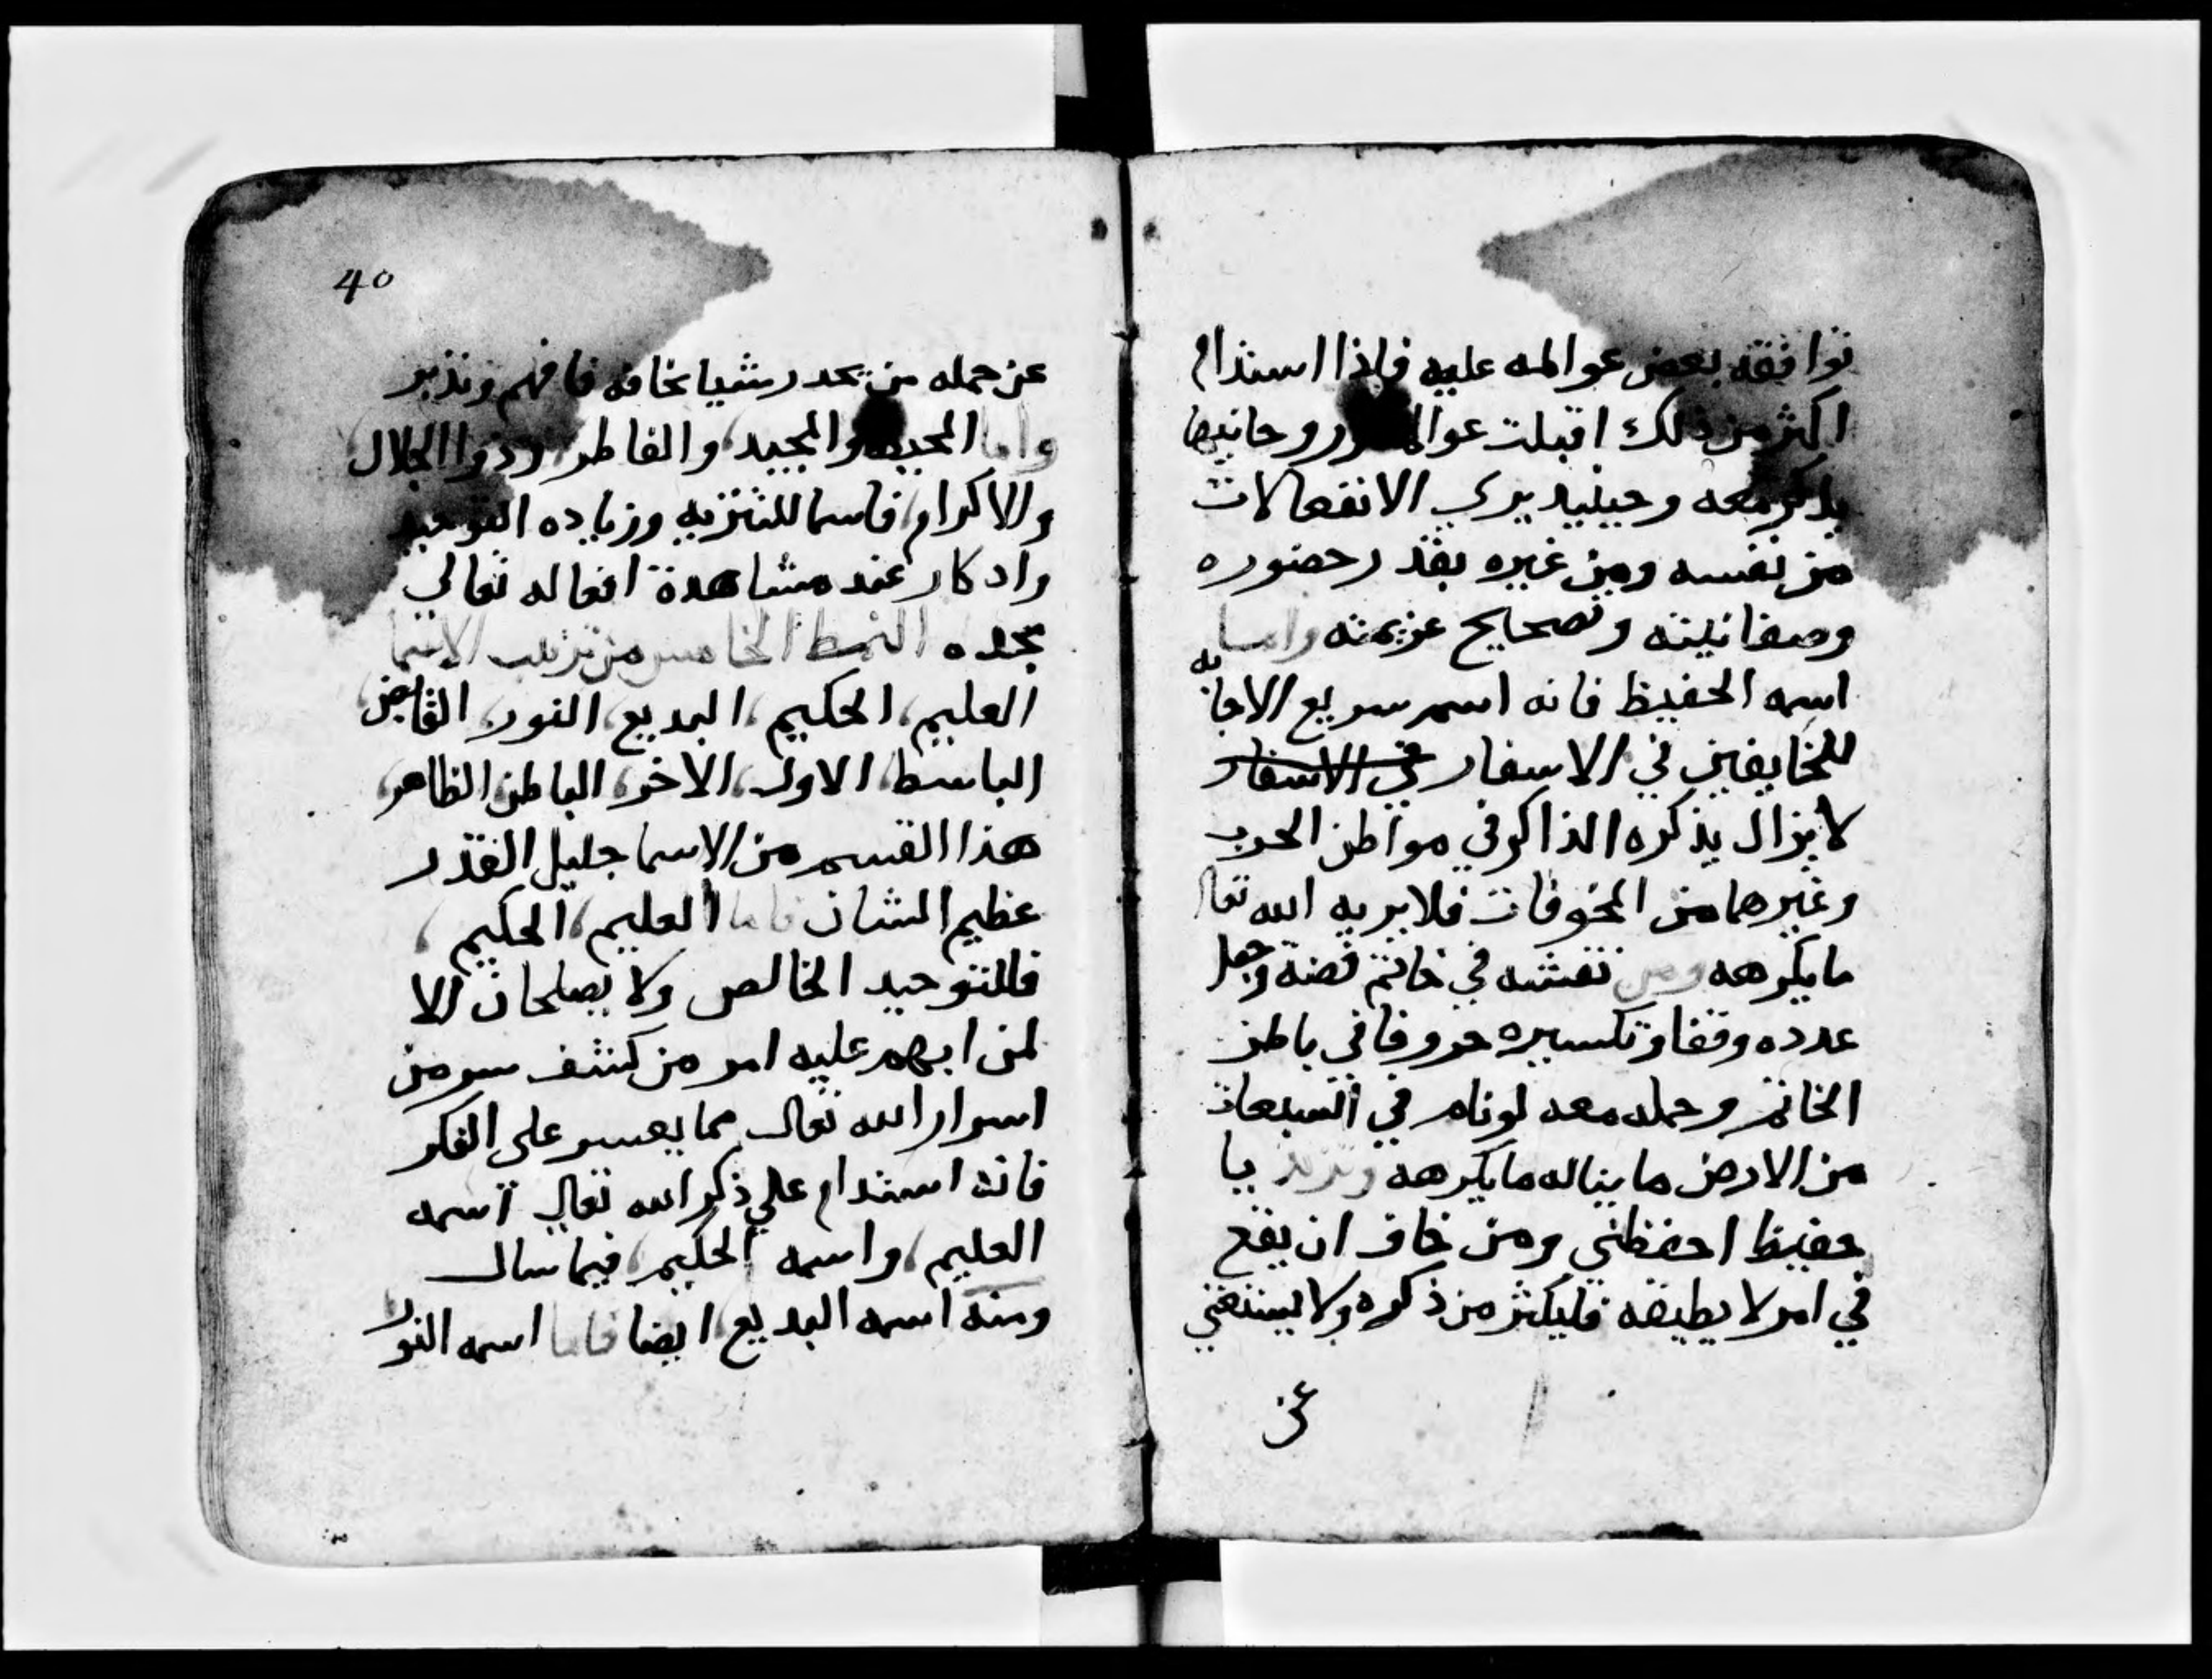 توافقه بعض عوالمه عليه فاذا استدام
اكثر من ذلك اقبلت عوالم روحانيها
يذكر معه وحينيد يري الانفعالات
من نفسه ومن غيره بقدر حضوره
وصفانيته وتصحايح عزيمته واما
اسمه الحفيظ فانه اسم سريع الاجابه
للخايفين في الاسفار في الاسفار
لا يزال يذكره الذاكر في مواطن الحرب
وغيرهما من المخوفات فلا يريه الله تعالى
ما يكرهه ومن نقشه في خاتم فضة وجعل
عدده وفقا وتكسيره حروفا في باطن
الخاتم وحمله معه لو نام في السبعات
من الارض ما يناله ما يكرهه يا
حفيظ احفظني ومن خاف ان يقع
في امر لا يطيقه فليكثر من ذكره ولا يستغني
عن
40
عن حمله من يحدر شيا يخافه فافهم وتدبر
واما المحيط والمجيد والفاطر وذوا الجلال
والاكرام فاسما للتنزيه وزياده التوحيد
وادكار عند مشاهدة افعاله تعالي
تجده النمط الخامس من ترتيب الاسما
العليم الحكيم البديع النور القابض
الباسط الاول الاخر الباطن الظاهر
هذا القسم من الاسما جليل القدر
عظيم الشان فاما العليم الحكيم
فللتوحيد الخالص ولا يصلحان الا
لمن ابهم عليه امر من كشف سر من
اسرار الله تعالى مما يعسر على الفكر
فانه استدام علي ذكر الله تعالى اسمه
العليم واسمه الحكيم فيما سال
ومنه اسمه البديع ايضا فاما اسمه النور